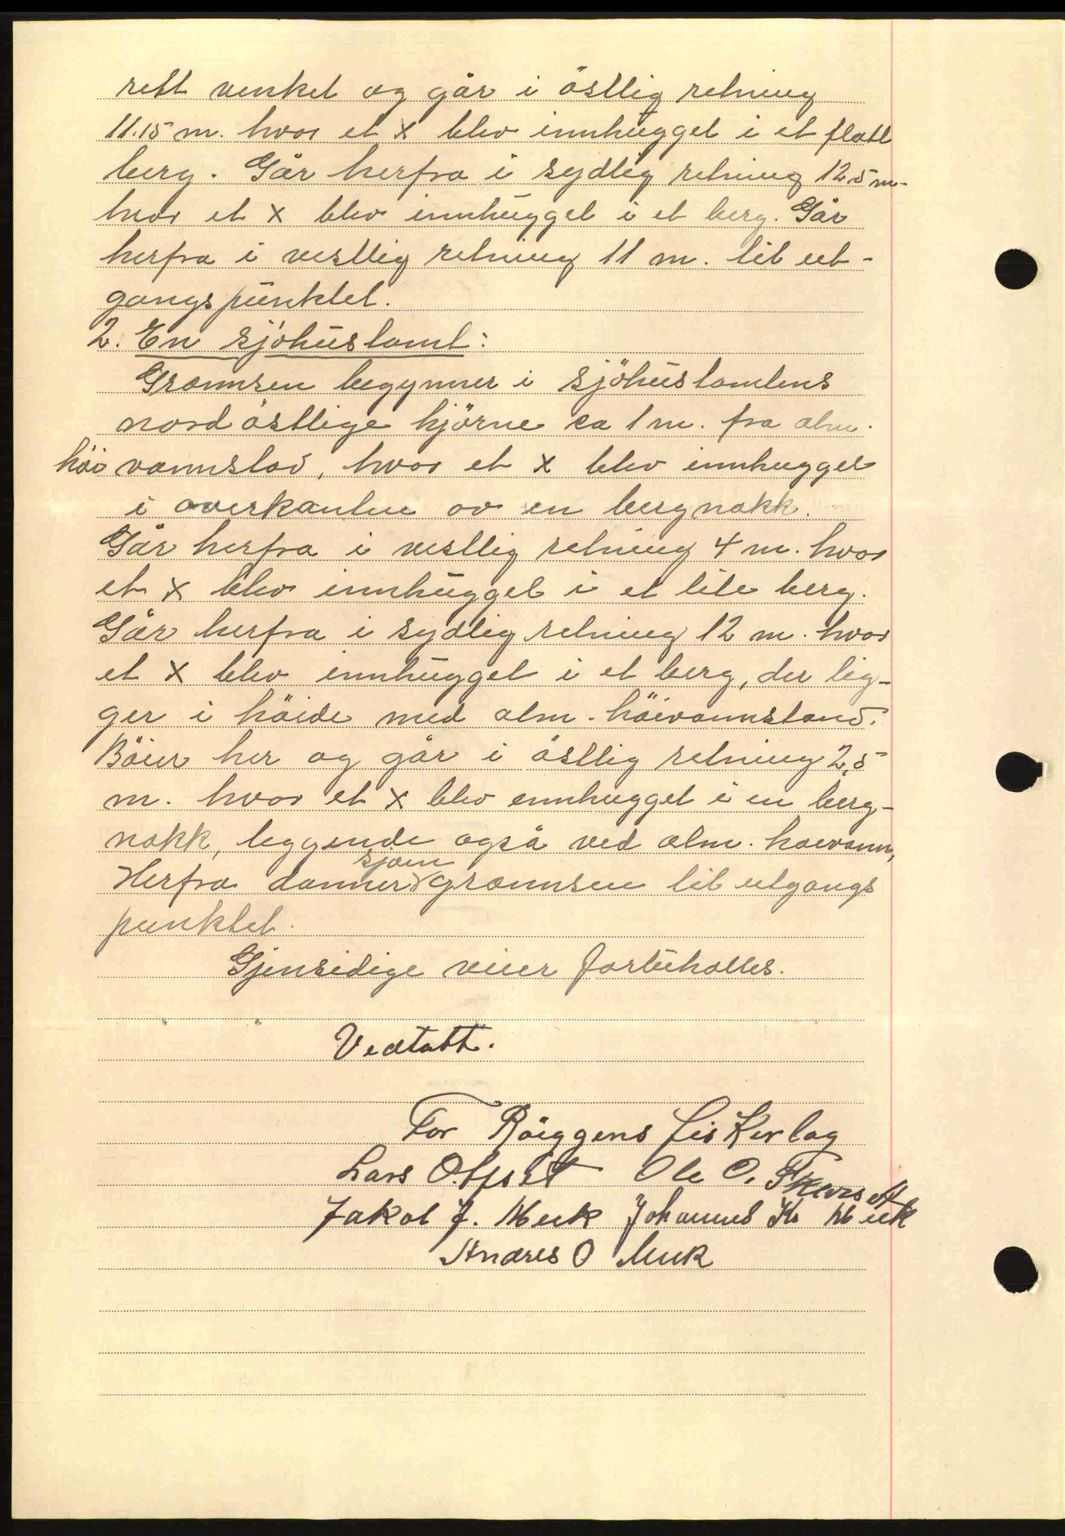 rett vinkel og går i östlig retning
11.15 m. hvor et x blev innhugget i et flatt
berg. Går herfra i sydlig retning 12,5 m.
hvor et x blev innhugget i et berg. Går
herfra i vestlig retning 11 m. til ut-
gangspunktet.
2. En sjöhustomt:
Grænnsen begynner i sjöhustomtens
nordöstlige hjörne ca 1 m. fra alm.
höivannstad, hvor et x blev innhugget
i overkanten av en bergnakk.
Går herfra i vestlig retning 4 m. hvor
et x blev innhugget i et lite berg.
Går herfra i sydlig retning 12 m. hvor
et x blev innhugget i et berg, der lig-
ger i höide med alm. höivannstand.
Böier her og går i östlig retning 2,5
m. hvor et x blev innhugget i en berg-
nakk, liggende også ved alm. høivann,
Herfra danner sjøen grænnsen til utgangs
punktet.
Gjensidige veier forbeholdes.
Vedtatt.
For Röeggens Fiskerlag
Lars Ole O.
Jakob J. Meek Johannes K. Meek
Andres O Meek